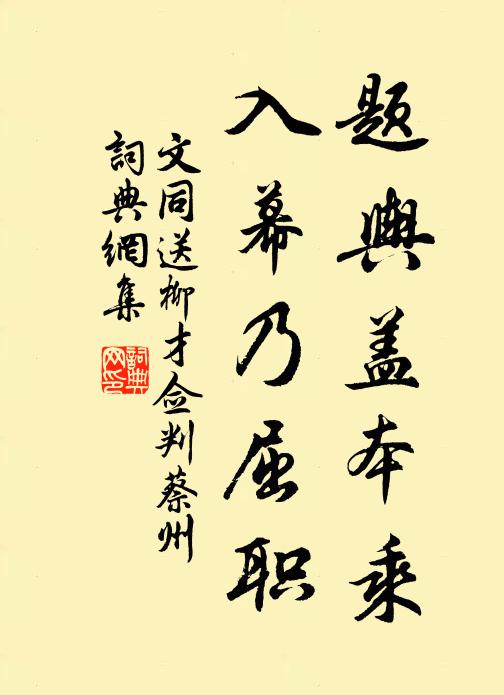 題輿盖本乘
入幕乃屈职
文同送柳才佥判蔡州
詞典網集
詞典网印